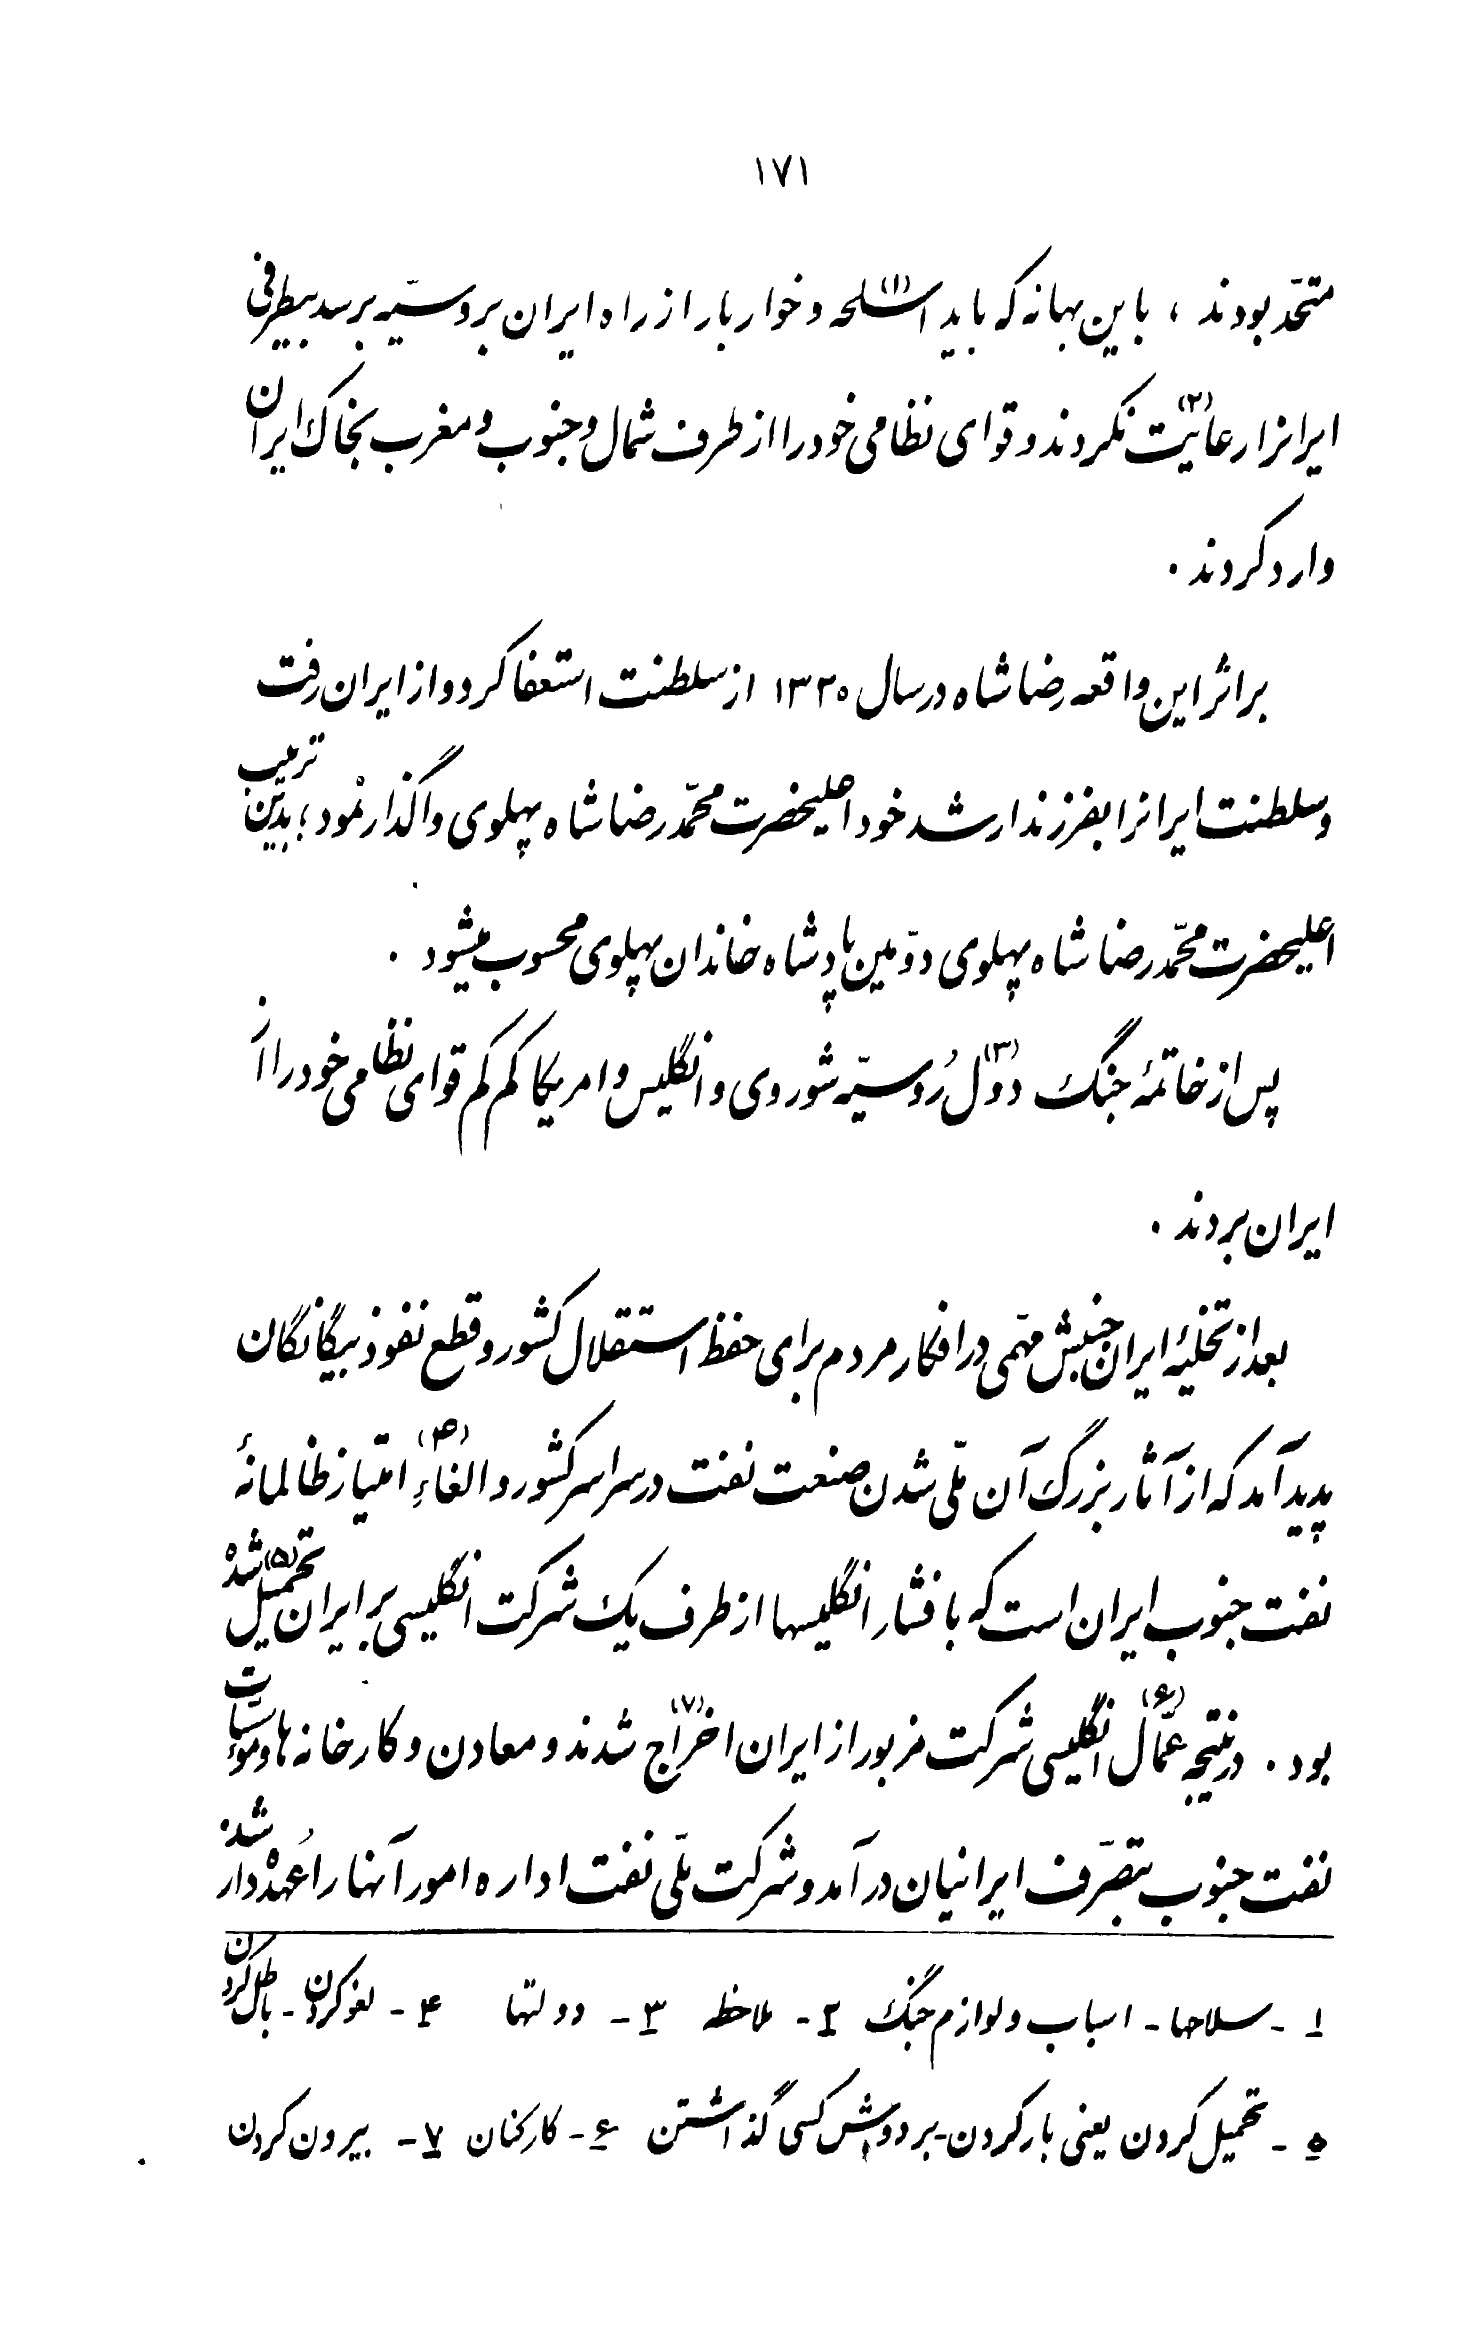 ۱۷۱
متحّد بودند ، باین بهانه که باید اسلحه(۱) و خواربار از راه ایران بروسیّه برسد بیطرفی
ایرانرا رعایت(۲) نکردند و قوای نظامی خود را از طرف شمال و جنوب و مغرب بخاك ایران
وارد کردند .
براثر این واقعه رضاشاه در سال ۱۳۲۰ از سلطنت استعفا کرد و از ایران رفت
و سلطنت ایرانرا بفرزند ارشد خود اعلیحضرت محمّدرضاشاه پهلوی واگذار نمود ؛ بدین ترتیب
اعلیحضرت محمّدرضا شاه پهلوی دوّمین پادشاه خاندان پهلوی محسوب میشود .
پس از خاتمهٔ جنگ دُوَل(۳) رُوسیّه شوروی و انگلیس و امریکا کم کم قوای نظامی خود را از
ایران بردند .
بعد از تخلیهٔ ایران جنبش مهّمی در افکار مردم برای حفظ استقلال کشور و قطع نفوذ بیگانگان
پدید آمد که از آثار بزرگ آن ملّی شدن صنعت نفت در سراسر کشور و الغاءِ(۴) امتیاز ظالمانهٔ
نفت جنوب ایران است که با فشار انگلیسها از طرف یک شرکت انگلیسی بر ایران تحمیل(۵) شدهْ
بود . در نتیجه عمّال(۶) انگلیسی شرکت مزبور از ایران اخراج(۷) شدند و معادن و کارخانه ها و مؤسّسات
نفت جنوب بتصرّف ایرانیان در آمد و شرکت ملّی نفت اداره امور آنها را عُهده‌دار شد.
۱ - سلاحها - اسباب و لوازم جنگ ۲ - ملاحظه ۳ - دولتها ۴ - لغو کردن - باطل کردن
۵ - تحمیل کردن یعنی بار کردن - بر دوش کسی گذاشتن ۶ - کارکنان ۷ - بیرون کردن